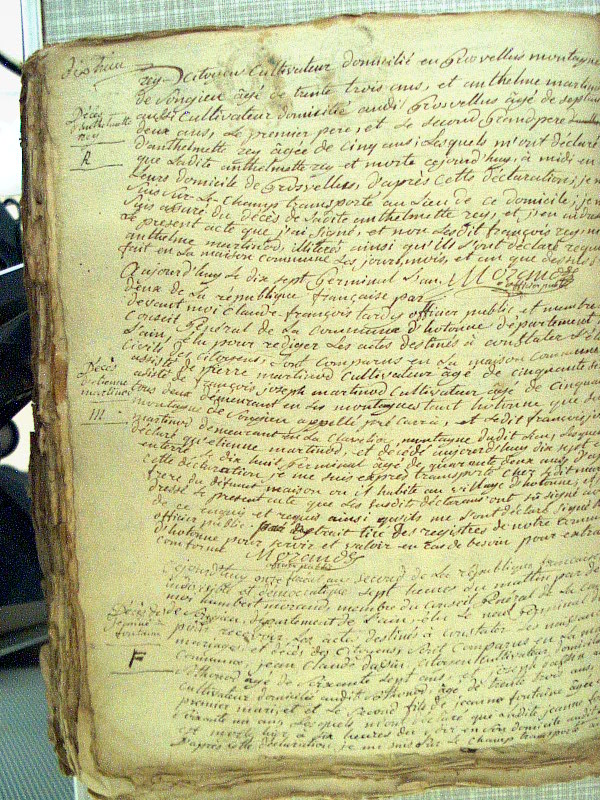 dixhuit
rey Citoyen Cultivateur domicilié en Prosvellus montagne
de Songieu agé de trente trois ans, et anthelme martinod
aussi Cultivateur domicilié audit Prosvellus âgé de septante
deux ans, Le premier pere, et Le second Grand pere
Décès
d'anthelmette
rey
d'anthelmette rey agée de cinq ans; Lesquels m'ont déclaré
R
que Ladite anthelmette rey est morte cejourd'huy, à midi en
Leurs domicile de Prosvellus, d'après cette déclaration, je me
suis sur Le Champ transporté au Lieu de ce domicile, je me
suis assuré du décès de Ladite anthelmette rey, et j'en ai dressé
Le présent acte que j'ai signé, et non Lesdit françois rey, ni
anthelme martinod, illiterés ainsi qu'ils L'ont déclaré requis
fait en La maison commune Les jour, mois, et an que dessus
Morand
officier public
Aujourd'huy Le dix sept Germinal L'an
deux de La république française par
devant moi Claude françois tardy officier public et membre du
Conseil Général de La commune d'hotonne département de
L'ain, élu pour rediger Les actes destinés à constater L'état
civils des citoyens, sont comparus en La maison Commune
Décès
d'etienne
martinod
assisté de pierre martinod cultivateur âgé de cinquante
de françois joseph martinod Cultivateur âgé de cinquante
tous deux demeurant en Les montagnes tant hotonne que de
montagne de Songieu appellé
m
martinod demeurant en La Clavelia, montagne dudit Lieu, Lesquels
déclaré qu'etienne martinod, est décédé aujourd'huy dix sept
en terre Le dix huit Germinal agé de quarante deux ans d'après
cette déclaration je me suis exprès transporté chez Ledit martinod
frere du défunt maison ou il habite au village d'hotonne, et
dressé Le present acte que Les susdit déclarans ont signé avec
de ce enquis et requis ainsi qu'ils me L'ont déclaré signé
officier public extrait tiré des registres de notre commune
d'hotonne pour servir et valoir en cas de besoin pour extrait
conforme Morand
officier public
Cejourd'huy onze floréal an second de La république française
indivisible et démocratique sept heures du matin par devant
moi humbert morand, membre du conseil Général de La Commune
Décès de
jeanne
fontaine
de Songieu, département de L'ain, élu Le neuf Germinal
pour recevoir Les actes destinés à constater Les naissances
mariages et décès des Citoyens, sont Comparus en La maison
F
commune, jean Claude dapsin, citoyen Cultivateur domicilié
à Sothonod âgé de soixante sept ans, et joseph dapsin
Cultivateur domicilié audit Sothonod, âgé de trente trois ans,
premier mari, et Le second fils de jeanne fontaine agée de
soixante un ans, Lesquels m'ont déclaré que Ladite jeanne fontaine
est morte hier à dix heures du soir en son domicile audit
d'après cette déclaration, je me suis sur Le champ transporté